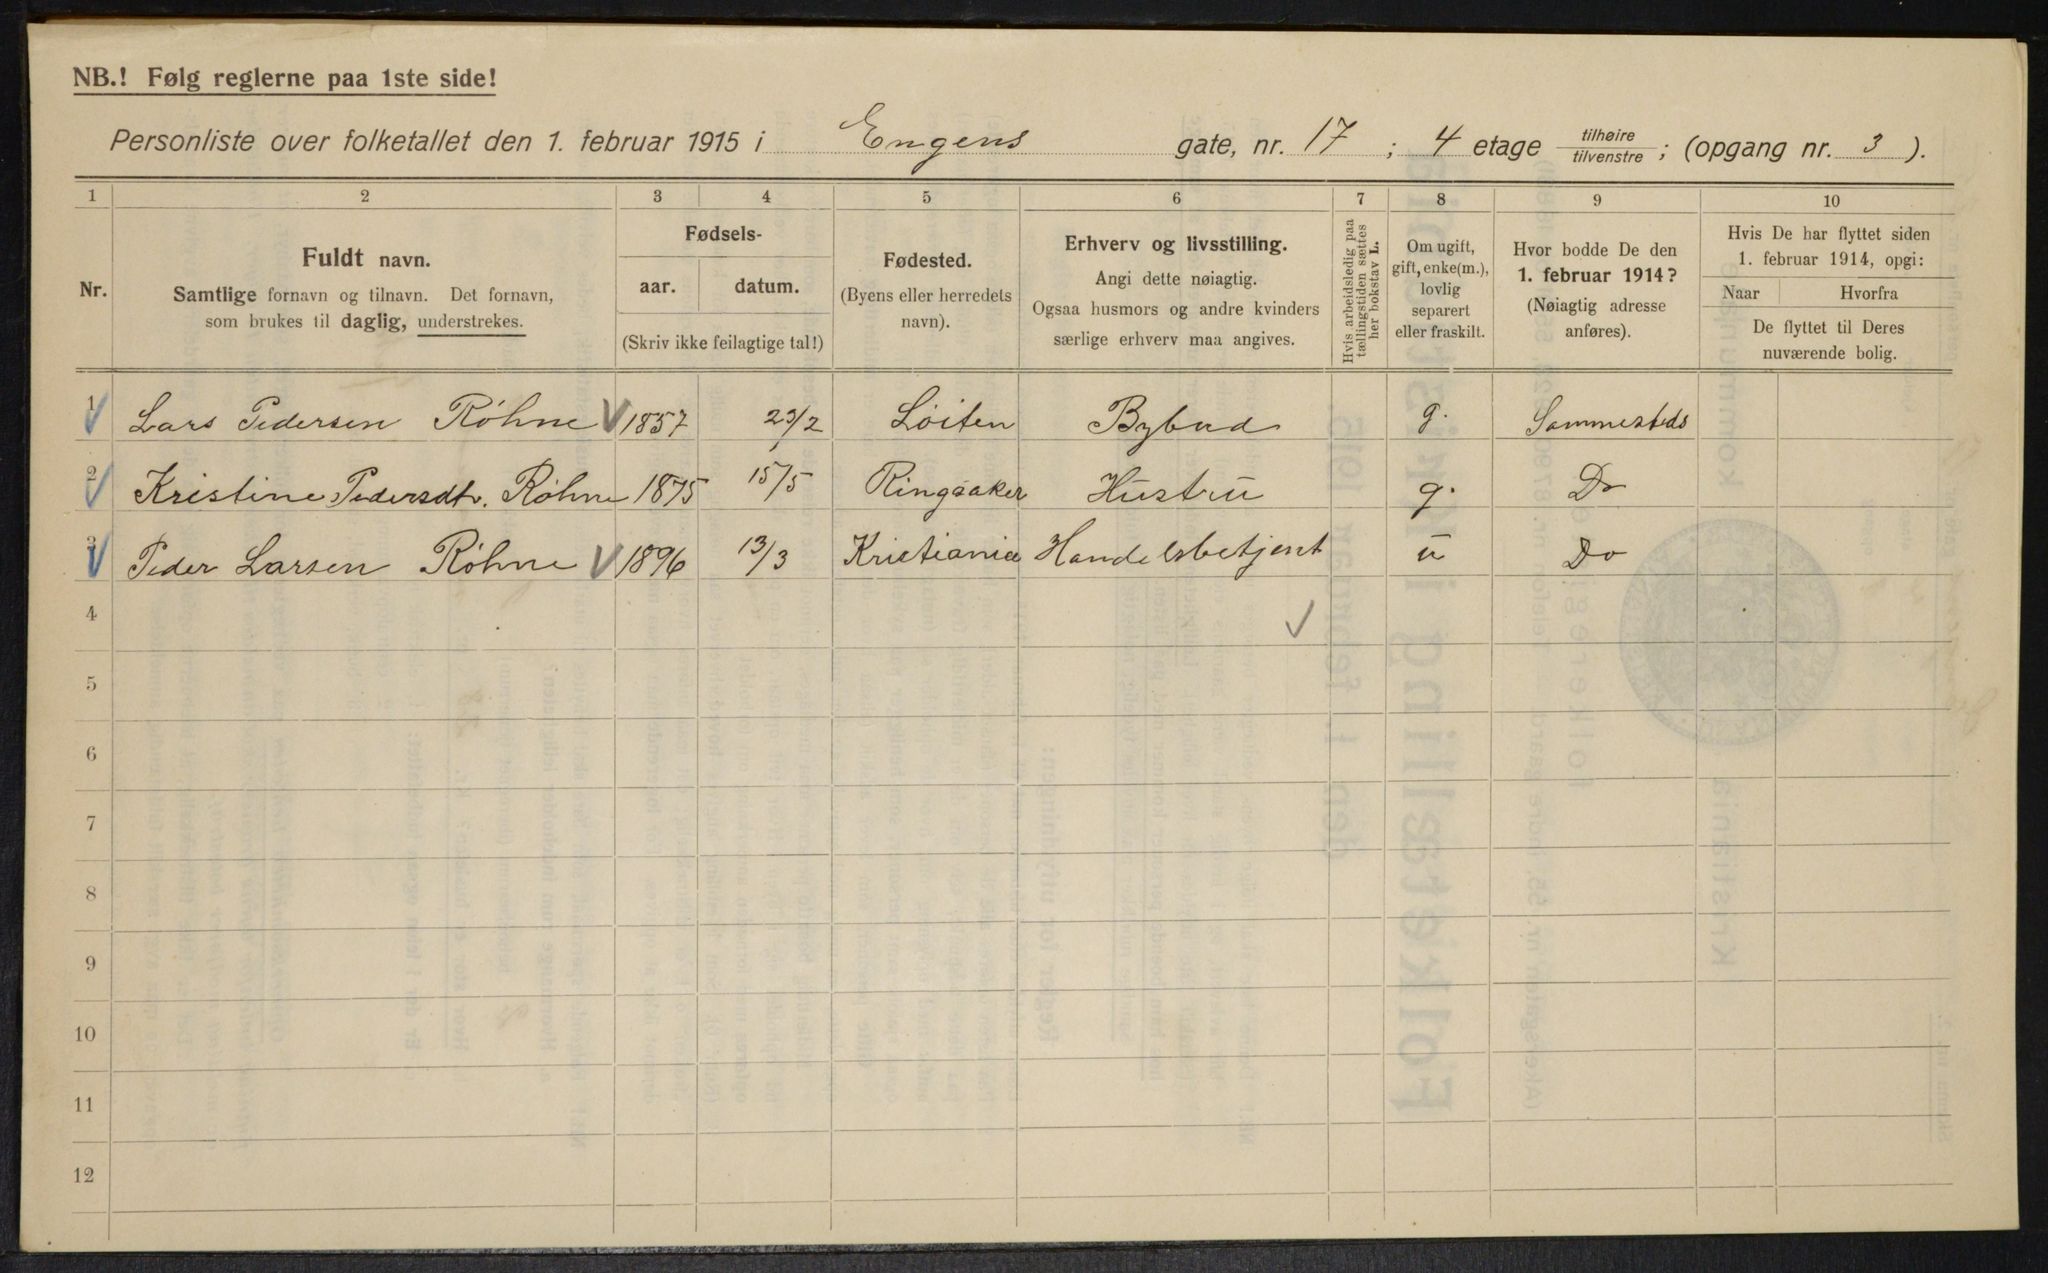 NB.! Følg reglerne paa 1ste side!
Personliste over folketallet den 1. februar 1915 i Engens gate, nr. 17 ; 4 etage tilhøire / tilvenstre ; (opgang nr. 3 ).
1 2 3 4 5 6 7 8 9 10
Nr.
Fuldt navn.
Samtlige fornavn og tilnavn. Det fornavn,
som brukes til daglig, understrekes.
Fødsels-
aar. datum.
(Skriv ikke feilagtige tal!)
Fødested.
(Byens eller herredets
navn).
Erhverv og livsstilling.
Angi dette nøiagtig.
Ogsaa husmors og andre kvinders
særlige erhverv maa angives.
Hvis arbeidsledig paa
tællingstiden sættes
her bokstav L.
Om ugift,
gift, enke(m.),
lovlig
separert
eller fraskilt.
Hvor bodde De den
1. februar 1914?
(Nøiagtig adresse
anføres).
Hvis De har flyttet siden
1. februar 1914, opgi:
Naar Hvorfra
De flyttet til Deres
nuværende bolig.
1 Lars Pedersen Røhne 1857 23/2 Løiten Bybud g. Sammesteds
2 Kristine Pedersdtr. Røhne 1875 15/5 Ringsaker Hustru g. Do
3 Peder Larsen Røhne 1896 13/3 Kristiania Handelsbetjent u Do
4
5
6
7
8
9
10
11
12